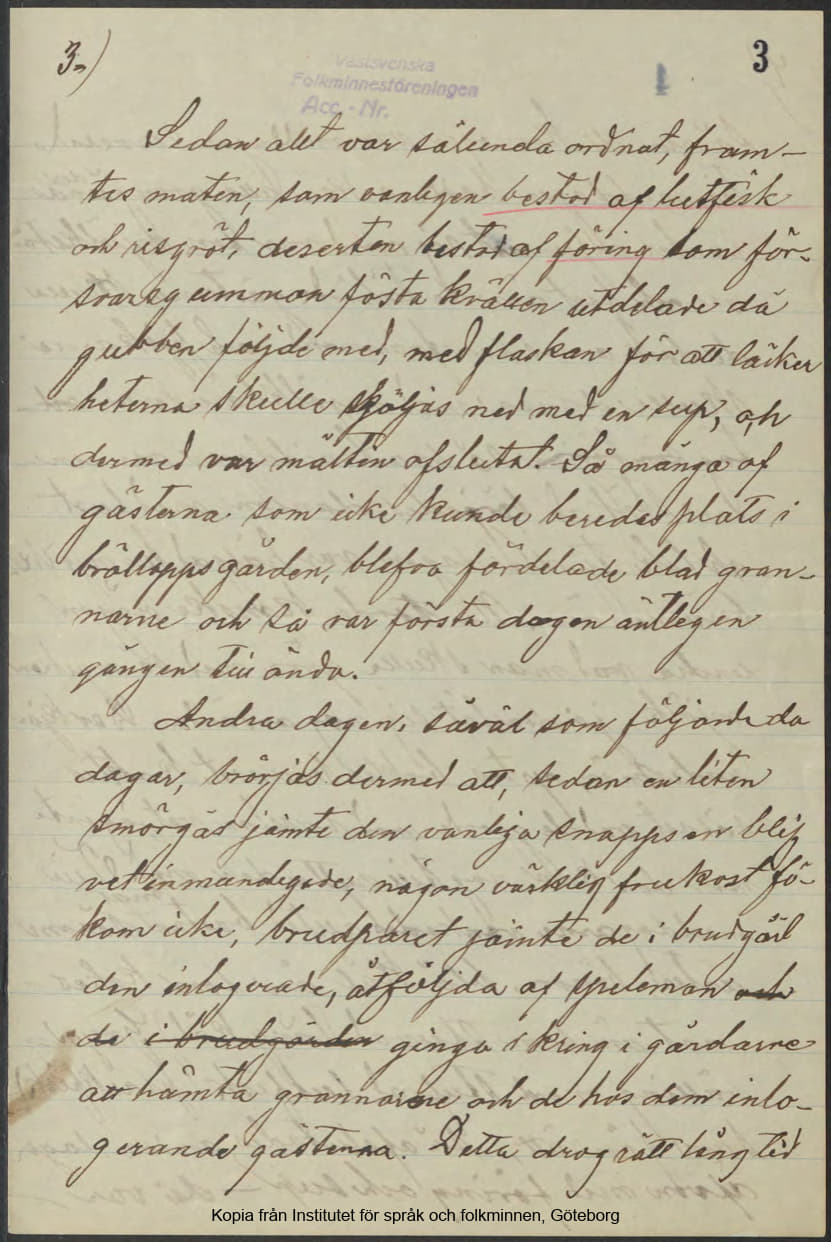 3.)
3
Västsvenska
Folkminnesföreningen
Acc.-Nr.
Sedan allt var sålunda ordnat, fram-
tes maten, som vanligen bestod af lutfisk
och risgröt, deserten bestod af föring som för-
svarsgumman fösta kvällen utdelade då
gubben följde med, med flaskan för att läcker
heterna skulle sköljas ned med en sup, och
dermed var måltin afslutat. Så många af
gästerna som icke kunde beredas plats i
bröllopps gården, blefvo fördelade blad gran-
narne och så var första dagen äntlegen
gången till ända.
Andra dagen, såväl som följande da
dagar, börjas dermed att, sedan en liten
smörgås jämte den vanliga snappsen blif
vet inmundegade, någon värklig frukost fö-
kom icke, brudparet jämte de i brudgål
den inlogerade, åtföljda af speleman och
de i brudgården gingo ikring i gårdarne
att hämta grannarne och de hos dem inlo-
gerande gästerna. Detta drog rätt lång tid
Kopia från Institutet för språk och folkminnen, Göteborg